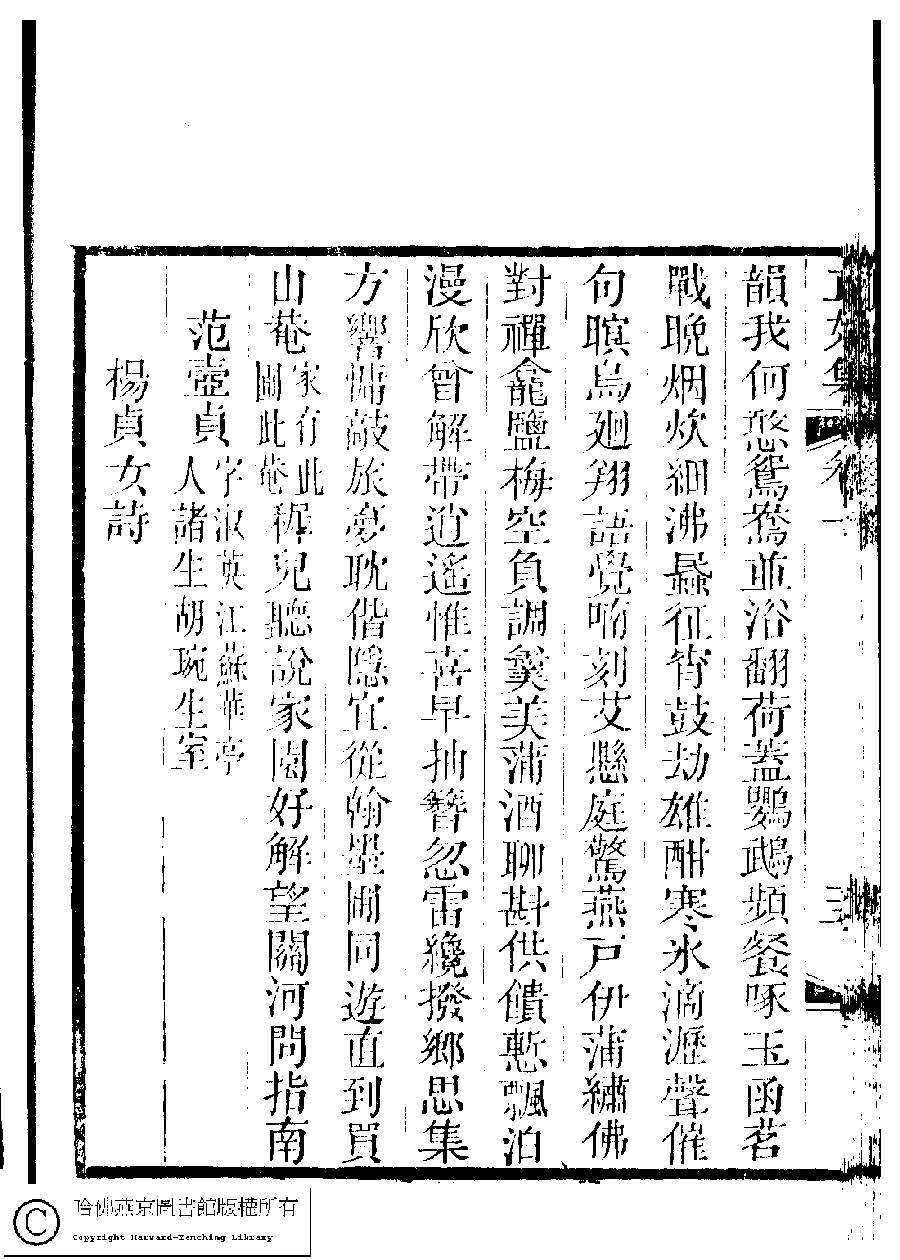 韻我何憨鴛鴦並浴翻荷蓋鸚鵡頻餐啄玉函茗
戰晚烟炊細沸蟁征宵鼓劫雄酣寒氷滴瀝聲催
句暝烏廻翔語覺喃刻艾懸庭驚燕戸伊蒲繡佛
對禪龕鹽梅空負調羹美蒲酒聊斟供饋慙飄泊
漫欣曾解帶逍遙惟喜早抽簪忽雷纔撥鄉思集
方響慵敲旅夢耽偕隱宜從翰墨圃同遊直到買
山菴家有此圖此菴穉兒聽說家園好解望關河問指南
范壼貞字淑英江蘇華亭人諸生胡琬生室
楊貞女詩
哈佛燕京圖書館版權所有
Copyright Harvard-Yenching Library